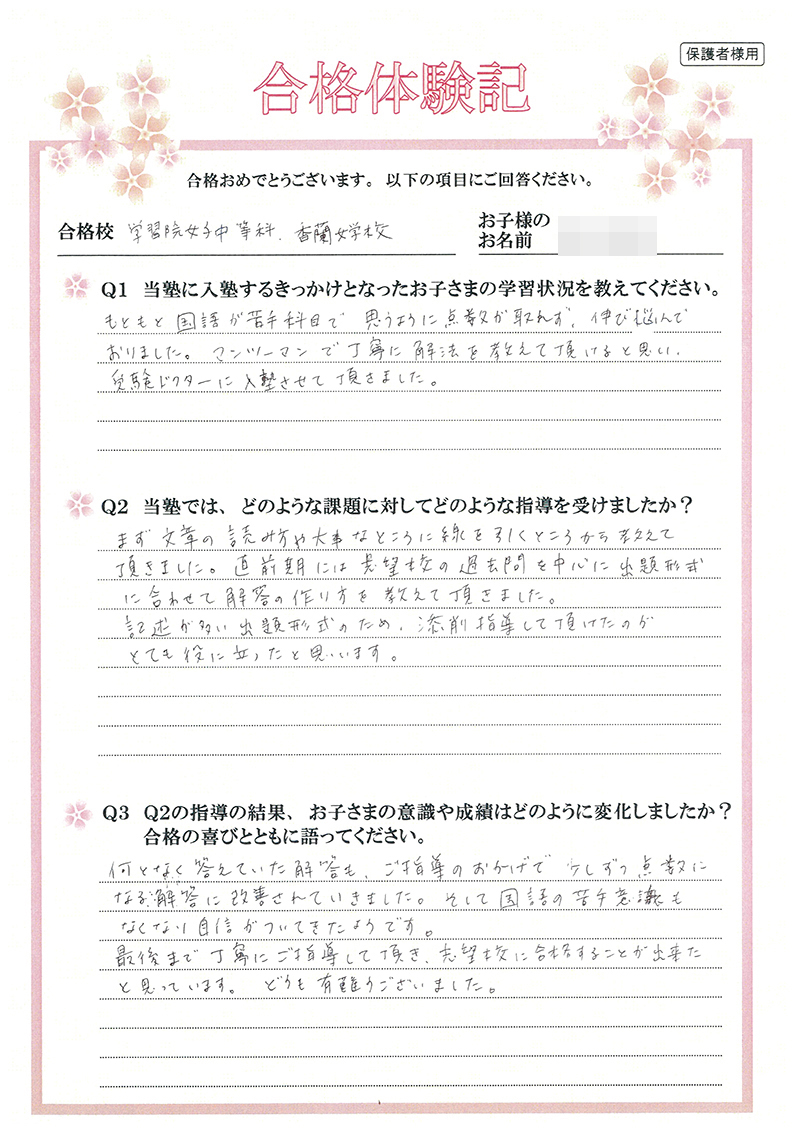 保護者様用
合格体験記
合格おめでとうございます。以下の項目にご回答ください。
合格校 学習院女子中等科、香蘭女学校
お子様の
お名前
Q1 当塾に入塾するきっかけとなったお子さまの学習状況を教えてください。
もともと国語が苦手科目で思うように点数が取れず、伸び悩んで
おりました。マンツーマンで丁寧に解法を教えて頂けると思い、
受験ドクターに入塾させて頂きました。
Q2 当塾では、どのような課題に対してどのような指導を受けましたか？
まず文章の読み方や大事なところに線を引くところから教えて
頂きました。直前期には志望校の過去問を中心に出題形式
に合わせて解答の作り方を教えて頂きました。
記述が多い出題形式のため、添削指導して頂けたのが
とても役に立ったと思います。
Q3 Q2の指導の結果、お子さまの意識や成績はどのように変化しましたか？
合格の喜びとともに語ってください。
何となく答えていた解答も、ご指導のおかげで少しずつ点数に
なる解答に改善されていきました。そして国語の苦手意識も
なくなり自信がついてきたようです。
最後まで丁寧にご指導して頂き、志望校に合格することが出来た
と思っています。どうも有難うございました。